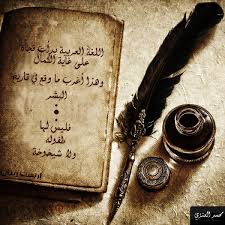 اللغة العربية بدأت فجأة
على غاية الكمال
وهذا أغرب ما وقع في تاريخ
البشر
فليس لها
طفولة
ولا شيخوخة
ارنست رينان
محمد العنزي